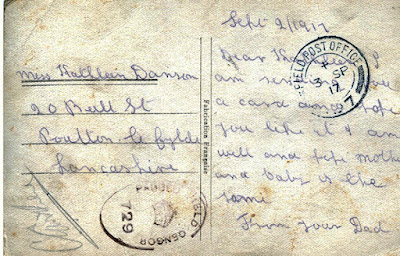 Sept 2/1917
Dear Kathleen I
am sending you
a card and hope
you like it I am
well and hope mother
and baby is the
same
From your Dad
Miss Kathlain Danson
20 Bull St
Poulton-le-fylde
Lancashire
Fabrication Française
FIELD POST OFFICE
SP
3
17
7
PASSED FIELD CENSOR
729